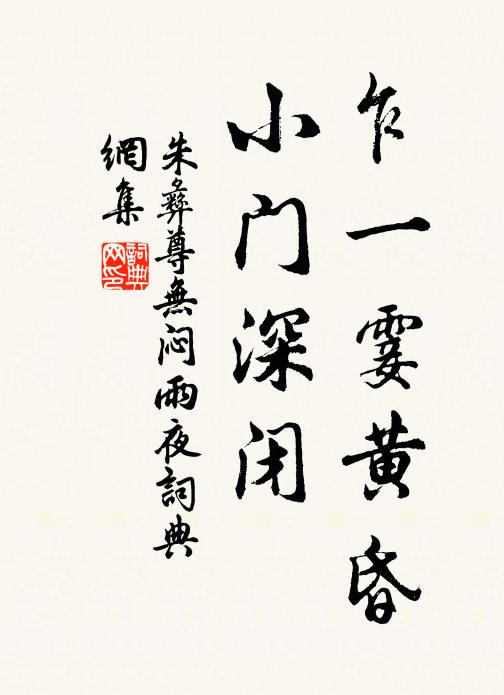 乍一霎黄昏
小门深闭
朱彝尊無闷雨夜詞典
網集
詞典網印